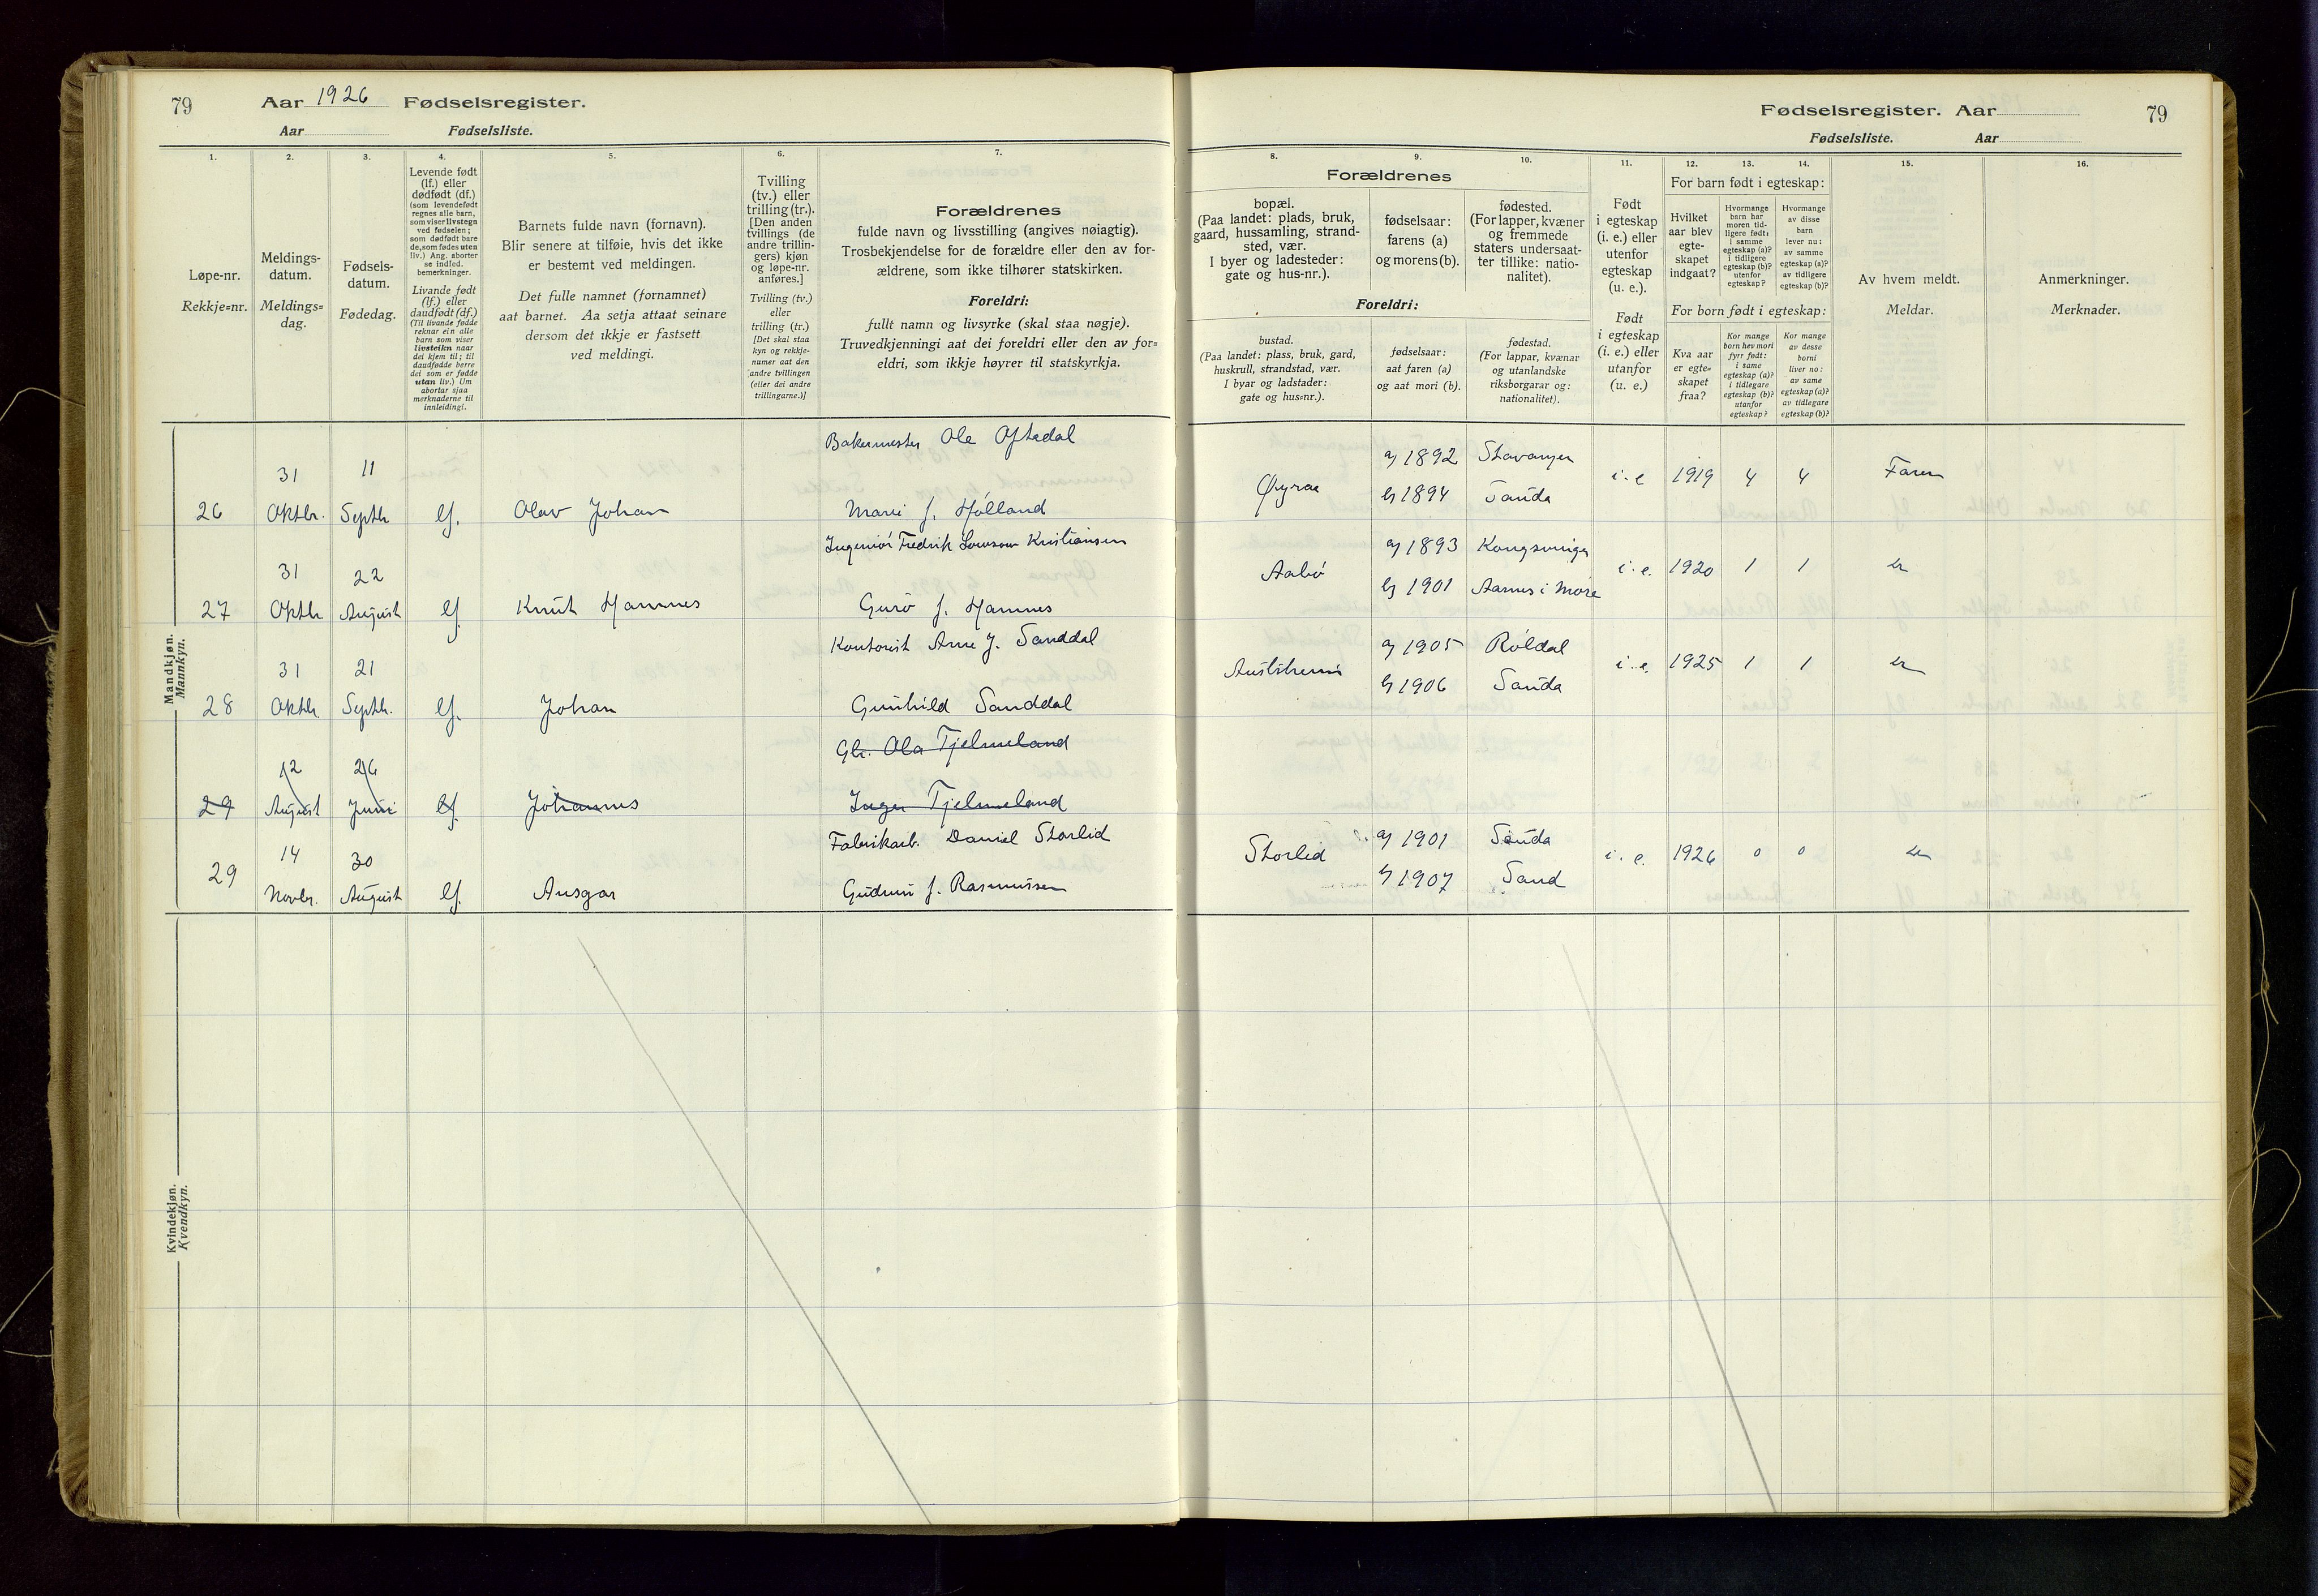 79 Aar 1926 Fødselsregister.
Aar Fødselsliste.
1.
2.
3.
4.
5.
6.
7.
Løpe-nr.
Rekkje=nr.
Meldings-
datum.
Meldings=
dag.
Fødsels-
datum.
Fødedag.
Levende født
(lf.) eller
dødfødt (df.)
(som levendefødt
regnes alle barn,
som viser livstegn
ved fødselen;
som dødfødt bare
de, som fødes uten
liv.) Ang. aborter
se indled.
bemerkninger.
Livande født
(lf.) eller
daudfødt (df.)
(Til livande fødde
reknar ein alle
barn som viser
livsteikn naar
dei kjem til; til
daudfødde berre
dei som er fødde
utan liv.) Um
abortar sjaa
merknaderne til
innleidingi.
Barnets fulde navn (fornavn).
Blir senere at tilføie, hvis det ikke
er bestemt ved meldingen.
Det fulle namnet (fornamnet)
aat barnet. Aa setja attaat seinare
dersom det ikkje er fastsett
ved meldingi.
Tvilling
(tv.) eller
trilling (tr.).
[Den anden
tvillings (de
andre trillin-
gers) kjøn
og løpe-nr.
anføres.]
Tvilling (tv.)
eller
trilling (tr.)
[Det skal staa
kyn og rekkje-
numer aat den
andre tvillingen
(eller dei andre
trillingarne.)]
Forældrenes
fulde navn og livsstilling (angives nøiagtig).
Trosbekjendelse for de forældre eller den av for-
ældrene, som ikke tilhører statskirken.
Foreldri:
fullt namn og livsyrke (skal staa nøgje).
Truvedkjenningi aat dei foreldri eller den av for=
eldri, som ikkje høyrer til statskyrkja.
Mandkjøn.
Mannkyn.
Bakermester Ole Oftedal
31 11
26 Oktbr. Septbr lf. Olav Johan Marie f. Hólland
Ingeniør Fredrik Kristiansen
31 22
27 Oktbr August lf. Knut Hamnes Guro f. Hamnes
Kontorist Arne J. Sanddal
31 21
28 Oktbr. Septbr. lf. Johan Gunhild Sanddal
Gbr. Ola Tjelmeland
12 26
29 August Juni lf. Johannes Inger Tjelmeland
Fabrikarb. Daniel Storlid
14 30
29 Novbr. August lf. Ansgar Gudrun f. Rasmussen
Kvindekjøn.
Kvendkyn.
Fødselsregister. Aar 79
Fødselsliste. Aar
8.
9.
10.
11.
12.
13.
14.
15.
16.
Forældrenes
bopæl.
(Paa landet: plads, bruk,
gaard, hussamling, strand-
sted, vær.
I byer og ladesteder:
gate og hus-nr.).
fødselsaar:
farens (a)
og morens (b).
fødested.
(For lapper, kvæner
og fremmede
staters undersaat-
ter tillike: natio-
nalitet).
Foreldri:
bustad.
(Paa landet: plass, bruk, gard,
huskrull, strandstad, vær.
I byar og ladstader:
gate og hus=nr.).
fødselsaar:
aat faren (a)
og aat mori (b).
fødestad.
(For lappar, kvænar
og utanlandske
riksborgarar og:
nationalitet).
Født
i egteskap
(i. e.) eller
utenfor
egteskap
(u. e.).
Født
i egteskap
(i. e.) eller
utanfor
(u. e.)
For barn født i egteskap:
Hvilket
aar blev
egte-
skapet
indgaat?
Hvormange
barn har
moren tid-
ligere født:
i samme
egteskap (a)?
i tidligere
egteskap (b)?
utenfor
egteskap?
Hvormange
av disse
barn
lever nu:
av samme
egteskap (a)?
av tidligere
egteskap (b)?
For born født i egteskap:
Kva aar
er egte=
skapet
fraa?
Kor mange
born hev mori
fyrr født:
i same
egteskap (a)?
i tidlegare
egteskap (b)?
utanfor
egteskap?
Kor mange
av desse
borni
liver no:
av same
egteskap (a)?
av tidlegare
egteskap (b)?
Av hvem meldt.
Meldar.
Anmerkninger.
Merknader.
Øyraa a) 1892 Stavanger i. e 1919 4 4 Faren
b) 1894 Sauda
Aabø a) 1893 Kongsvinger i. e. 1920 1 1
b) 1901 Aarnes i Møre
Austarheim a) 1905 Róldal i. e. 1925 1 1
b) 1906 Sauda
Storlid a) 1901 Sauda i. e. 1926 0 0
b) 1907 Sand